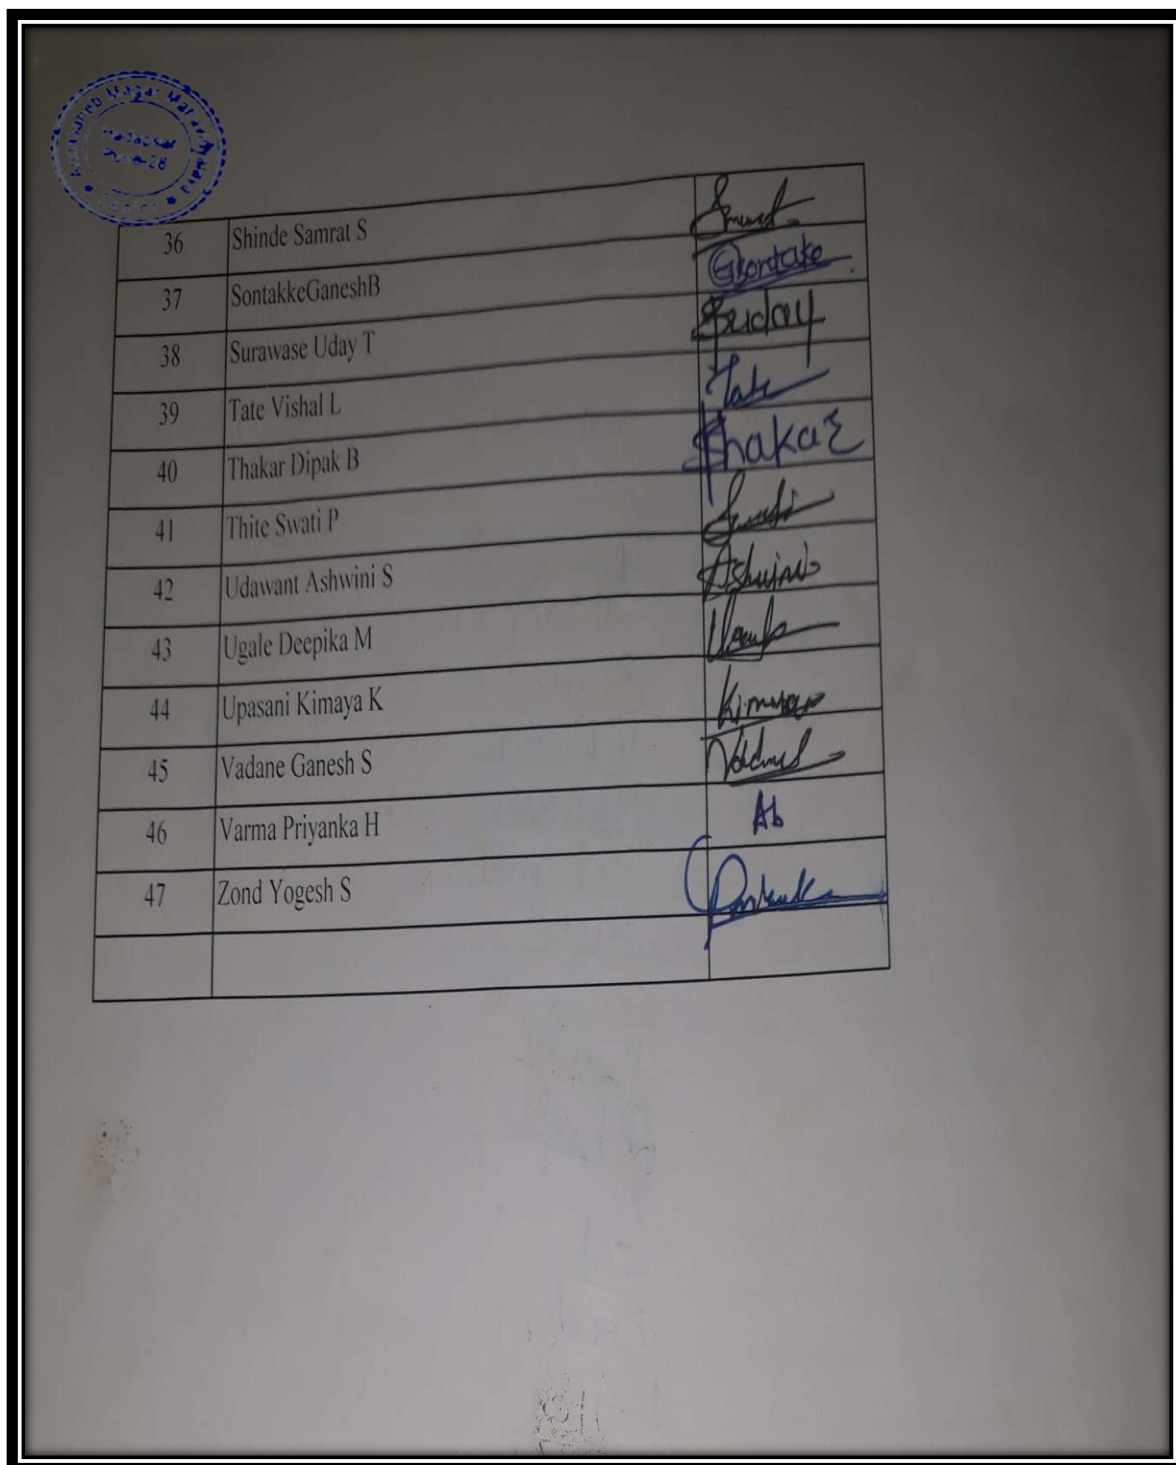 Magar
Hadapsar
Pune-28
36 Shinde Samrat S
37 SontakkeGaneshB
38 Surawase Uday T Suday
39 Tate Vishal L Tate
40 Thakar Dipak B Thakar
41 Thite Swati P
42 Udawant Ashwini S Ashwini
43 Ugale Deepika M
44 Upasani Kimaya K
45 Vadane Ganesh S
46 Varma Priyanka H Ab
47 Zond Yogesh S